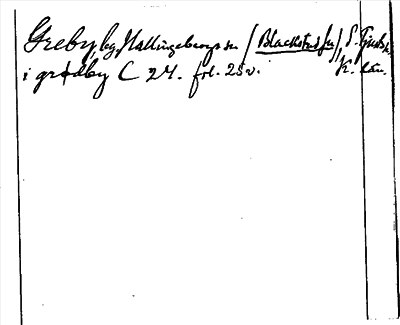 Greby, by, Hallingebergs sn / Blackstads sn /, S. Tjust
i grødby C 24. fol. 25v. K. län.